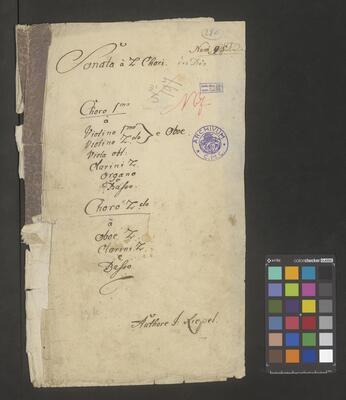 Num. 
Sonata à 2 Chori.
Choro 1mo
à
Violino 1mo
Violino 2do e Oboe
Viola obl.
Clarini 2.
Organo
e
Basso.
Choro 2do
à
Oboe 2.
Clarini 2.
e
Basso
Authore J. Riepel.
ARCHIVUM
colorchecker